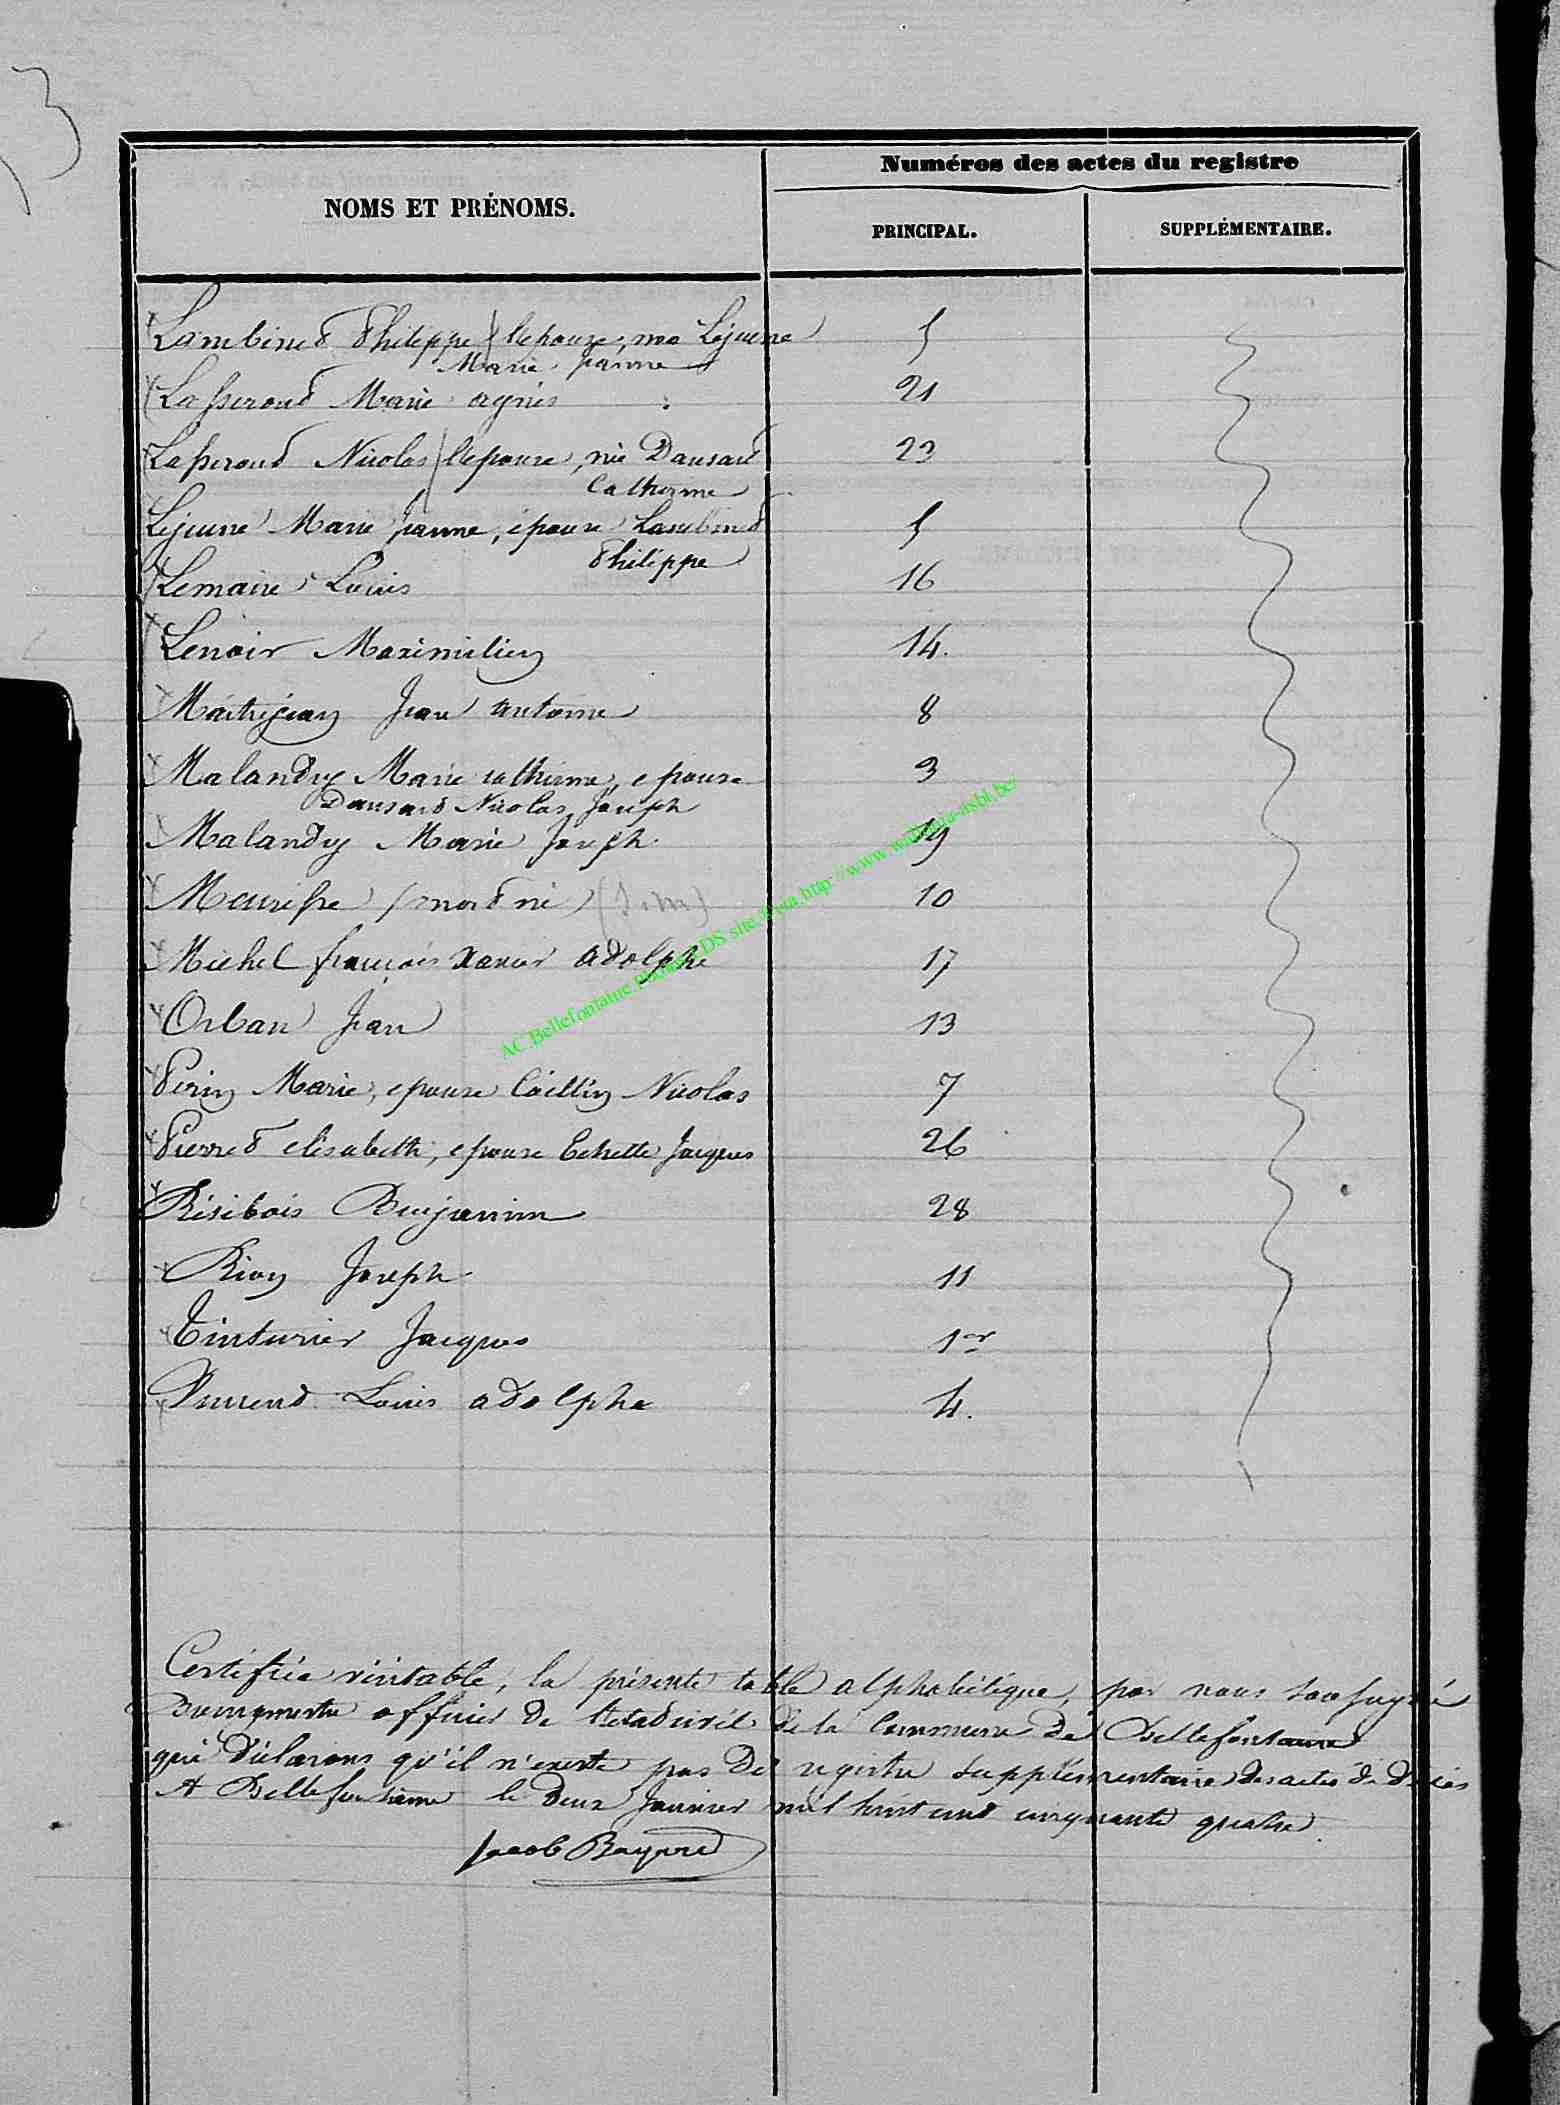 Numéros des actes du registre
NOMS ET PRÉNOMS.
PRINCIPAL.
SUPPLÉMENTAIRE.
Lambined Philippe (l'epouse, née Lejeune 5
Marie jeanne
Lasseroud Marie agnès 21
Lasseroud Nicolas (l'epouse, née Dansard 23
Catherine
Lejeune Marie jeanne, épouse Lambined 5
Philippe
Lemaire Louis 16
Lenoir Maximilien 14.
Maitrejean Jean antoine 8
Malandry Marie catherine, epouse 3
Dansard Nicolas Joseph
Malandry Marie Joseph 19
Meurisse (mort né) 10
Michel françois xavier adolphe 17
Orban Jean 13
Perin Marie, epouse Caillin Nicolas 7
Pierred elisabeth, epouse Echette Jacques 26
Résibois Benjamin 28
Rion Joseph 11
Tinturier Jacques 1er
Louis adolphe 4.
AC.Bellefontaine Photos EDS site Ansia http://www.wallonia-asbl.be/
Certifiée véritable, la présente table alphabétique, par nous soussigné
Bourgmestre officier de l'etat civil de la Commune de Bellefontaine
qui déclarons qu'il n'existe pas de registre supplémentaire des actes de décès
A Bellefontaine le deux Janvier mil huit cent cinquante quatre.
Jacob Bayard